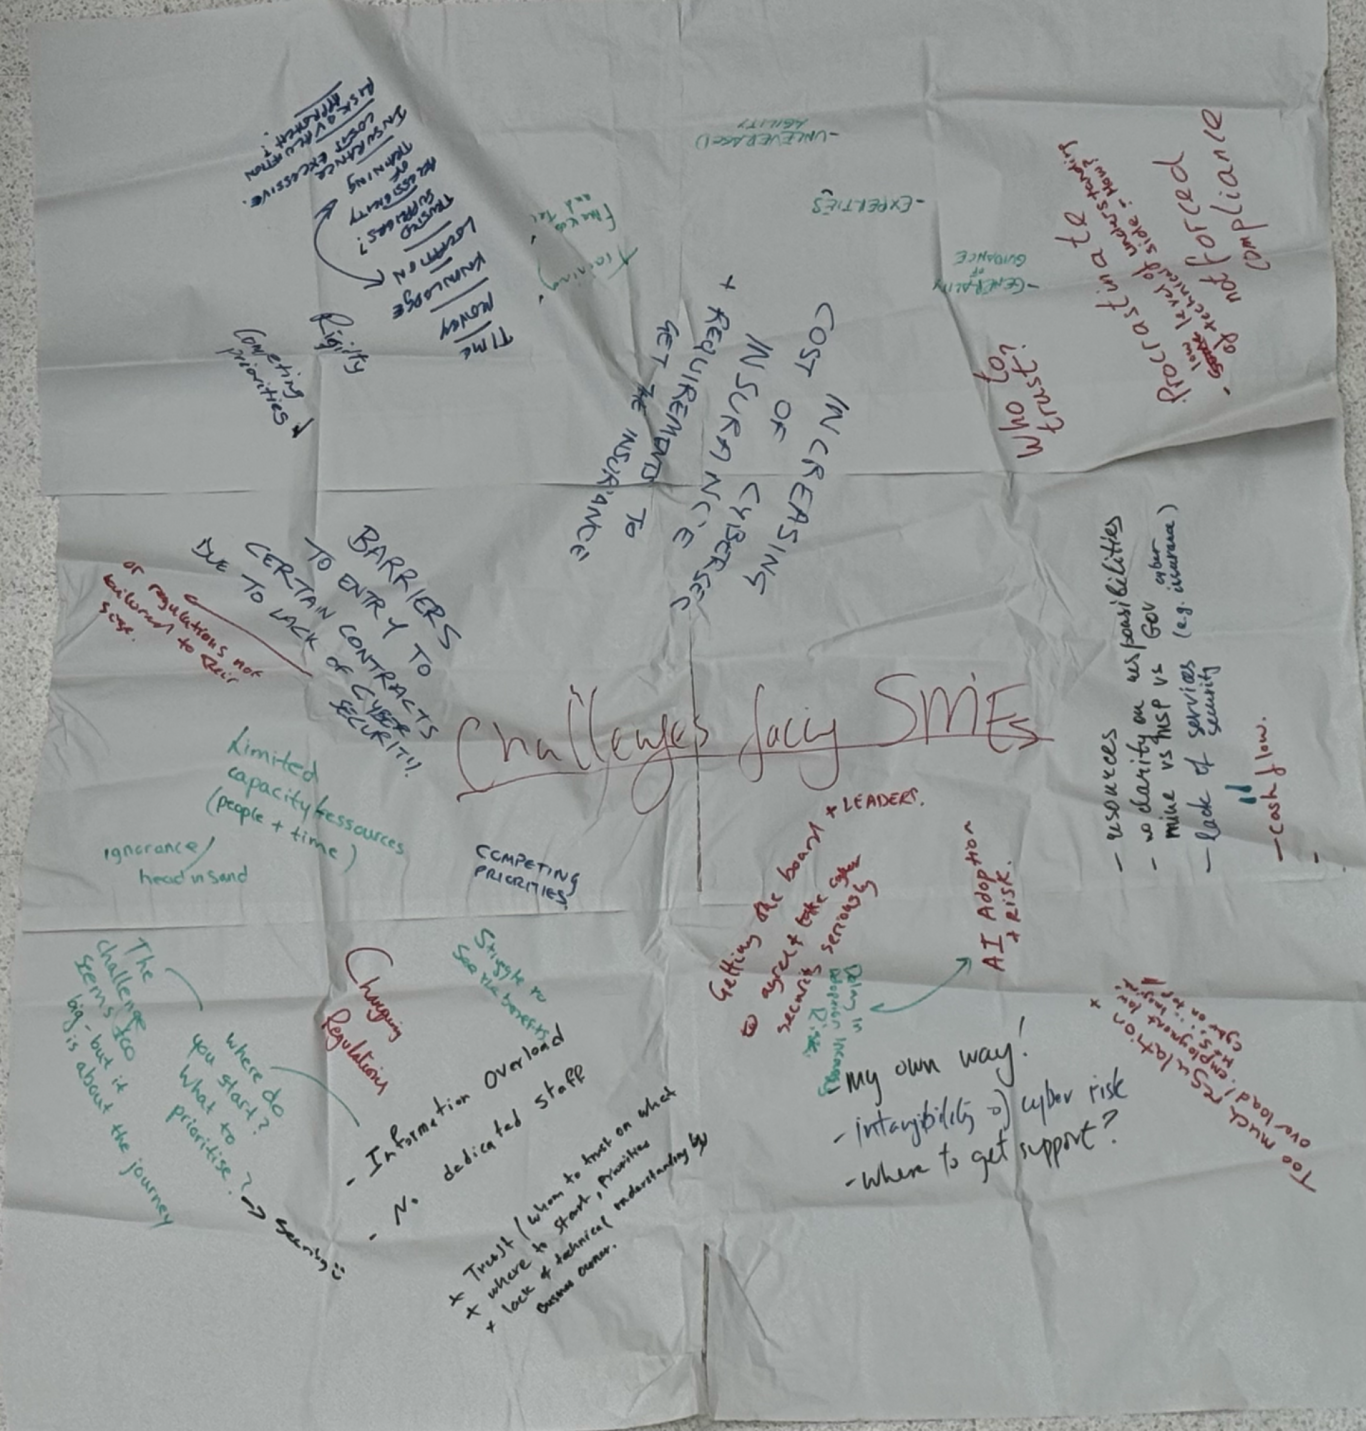 Challenges facing SMEs
TIME
MONEY
KNOWLEDGE
LOCATION
TRUSTED
SUPPLIERS?
ACCESSIBILITY
OF
TRAINING
INSURANCE
COST EXCESSIVE.
RISK EVALUATION
APPROACH?
Rigidity
Competing
priorities
-UNLEVERAGED
ABILITY
-EXPERTIES
-GENERALITY
OF
GUIDANCE
training
COST INCREASING
OF CYBERSEC
INSURANCE
+ REQUIREMENTS TO
GET THE INSURANCE
Who to
trust?
Procrastinate
low level of understanding
of technical side & how?
- not forced
compliance
BARRIERS
TO ENTRY TO
CERTAIN CONTRACTS
DUE TO LACK OF CYBER
SECURITY!!
or regulations not
tailored to their
size.
- resources
- no clarity on responsibilities
mine vs MSP vs Gov
- lack of services (e.g. cyber insurance)
security
- cash flow.
Limited
capacity/ressources
(people + time)
ignorance/
head in sand
COMPETING
PRIORITIES.
Getting the board + LEADERS.
to agree & take cyber
security seriously
AI Adoption
+ Risk.
The
challenge
seems too
big - but it
is about the journey
where do
you start?
What to
prioritise?
→ Security
Changing
Regulations
Struggle to
see the benefits
- Information overload
- No dedicated staff
+ Trust (whom to trust on what
+ where to start, priorities
+ lack of technical understanding by
business owner.
- my own way!
- intangibility of cyber risk
- where to get support?
Too much regulation
overload,
employment law,